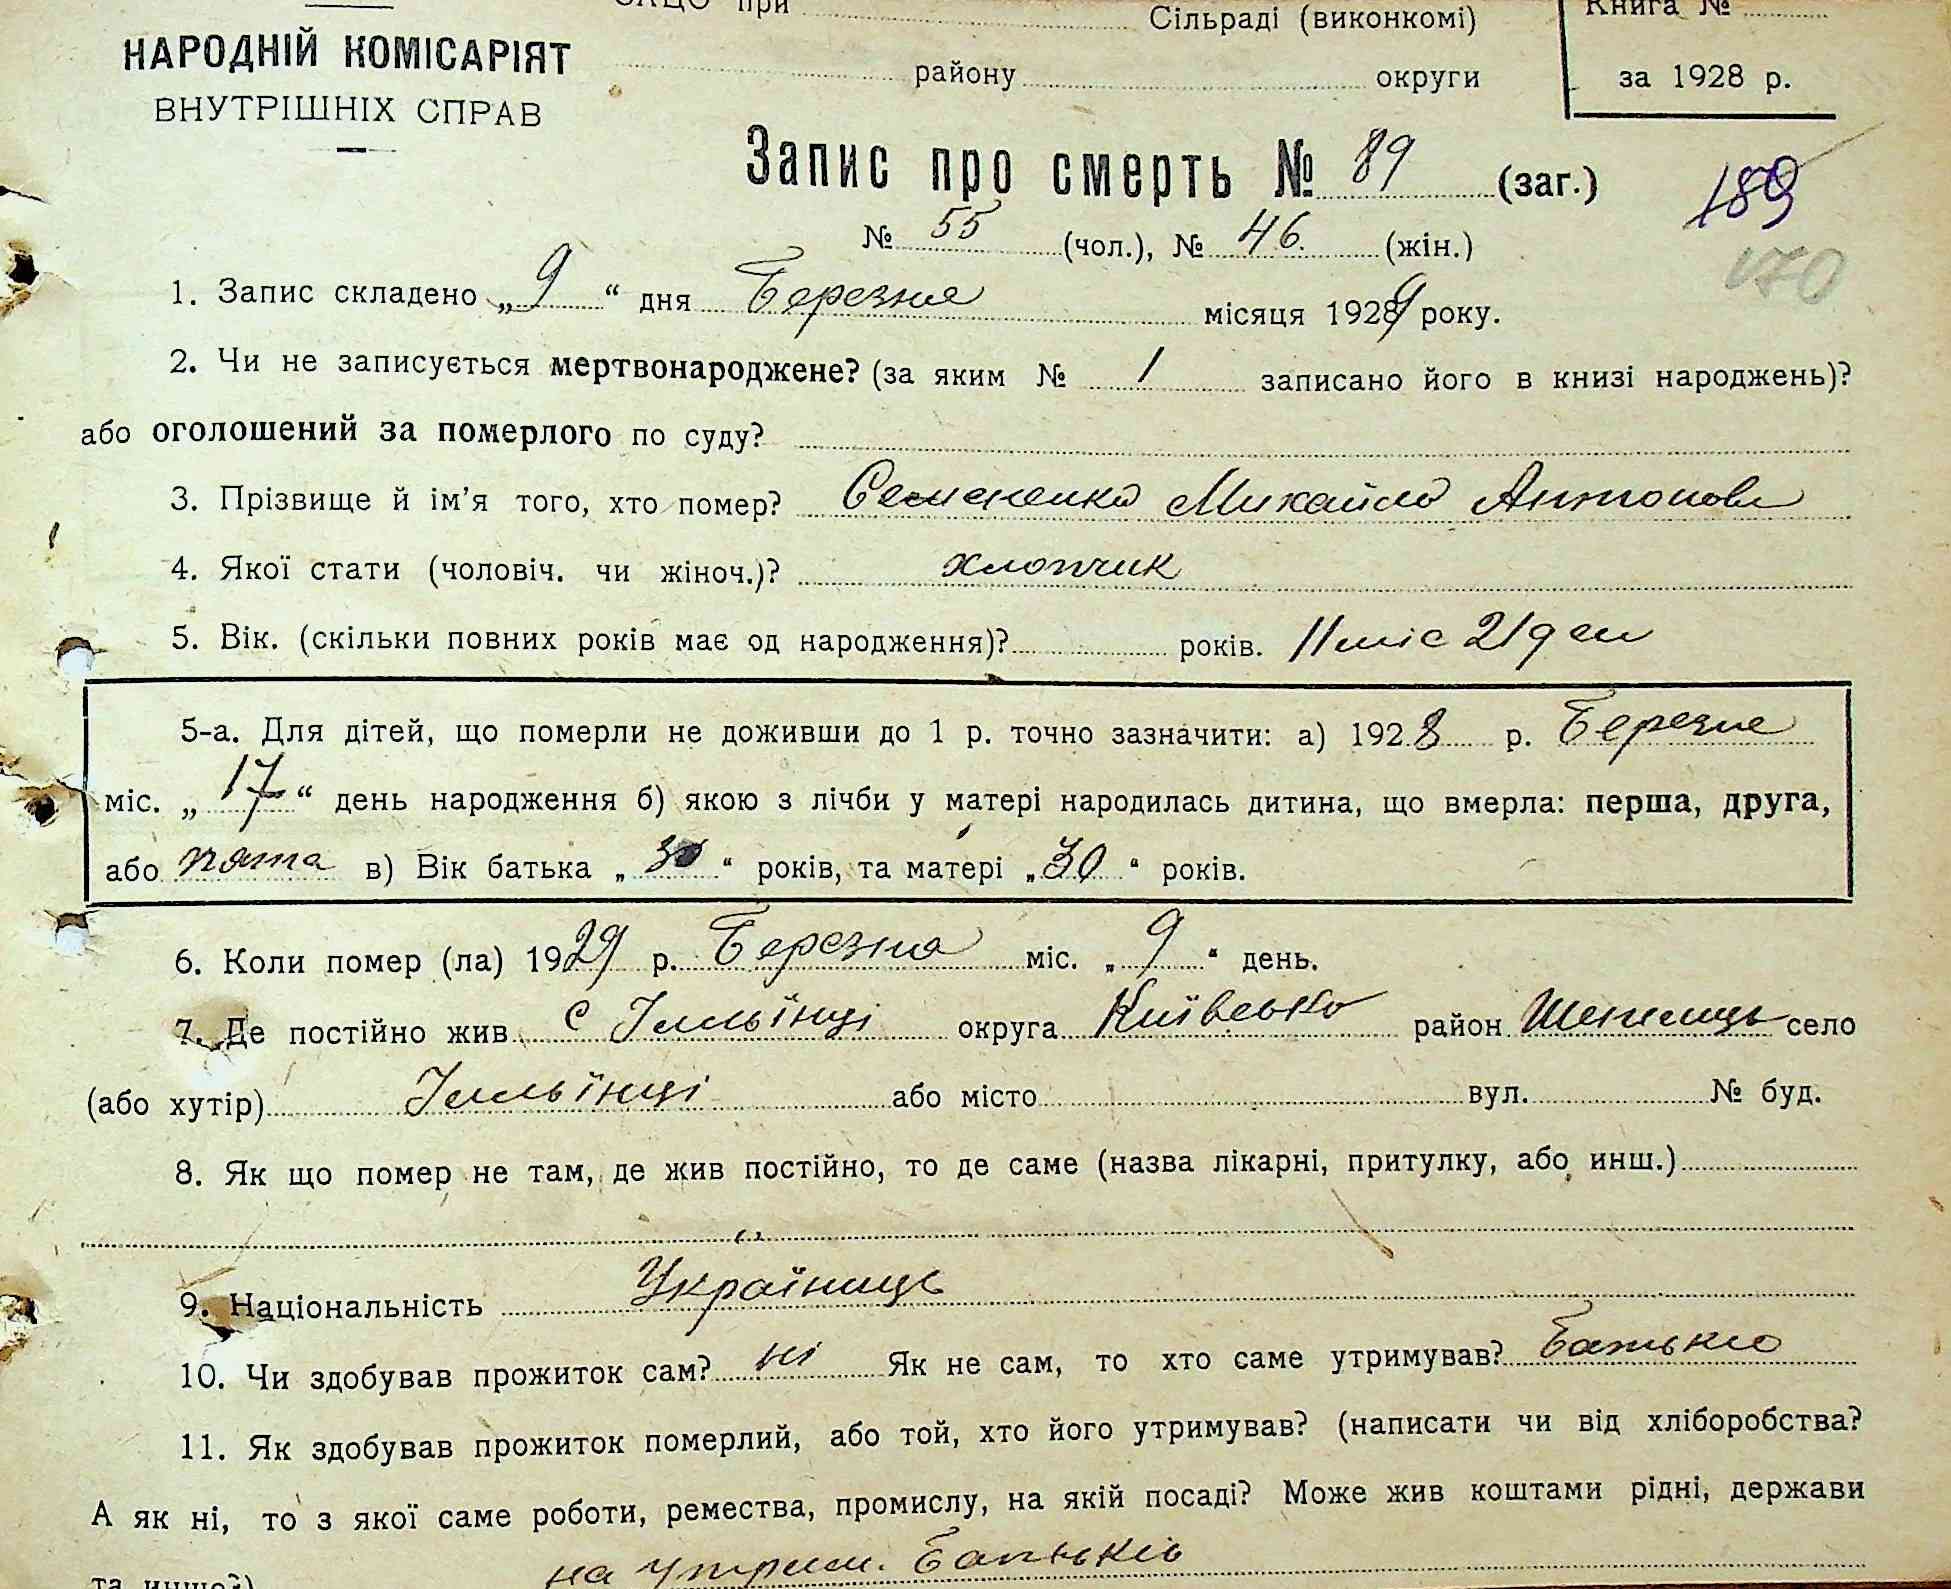 при Сільраді (виконкомі) Книга №
НАРОДНІЙ КОМІСАРІЯТ
ВНУТРІШНІХ СПРАВ
району округи за 1928 р.
Запис про смерть № 89 (заг.)
189
№ 55 (чол.), № 46. (жін.)
170
1. Запис складено „9“ дня Березня місяця 1929 року.
2. Чи не записується мертвонароджене? (за яким № / записано його в книзі народжень)?
або оголошений за померлого по суду?
3. Прізвище й ім'я того, хто помер? Семененко Михайло Антонов
4. Якої стати (чоловіч. чи жіноч.)? хлопчик
5. Вік. (скільки повних років має од народження)? років. 11 міс 21 ден
5-а. Для дітей, що померли не доживши до 1 р. точно зазначити: а) 1928 р. Березня
міс. „17“ день народження б) якою з лічби у матері народилась дитина, що вмерла: перша, друга,
або пята в) Вік батька „30“ років, та матері „30“ років.
6. Коли помер (ла) 1929 р. Березня міс. „9“ день.
7. Де постійно жив с Ілльїнці округа Київсько район Шепелиць село
(або хутір) Ілльїнці або місто вул. № буд.
8. Як що помер не там, де жив постійно, то де саме (назва лікарні, притулку, або инш.)
9. Національність Українець
10. Чи здобував прожиток сам? ні Як не сам, то хто саме утримував? Батько
11. Як здобував прожиток померлий, або той, хто його утримував? (написати чи від хліборобства?
А як ні, то з якої саме роботи, ремества, промислу, на якій посаді? Може жив коштами рідні, держави
та инше?) на утрим. батьків